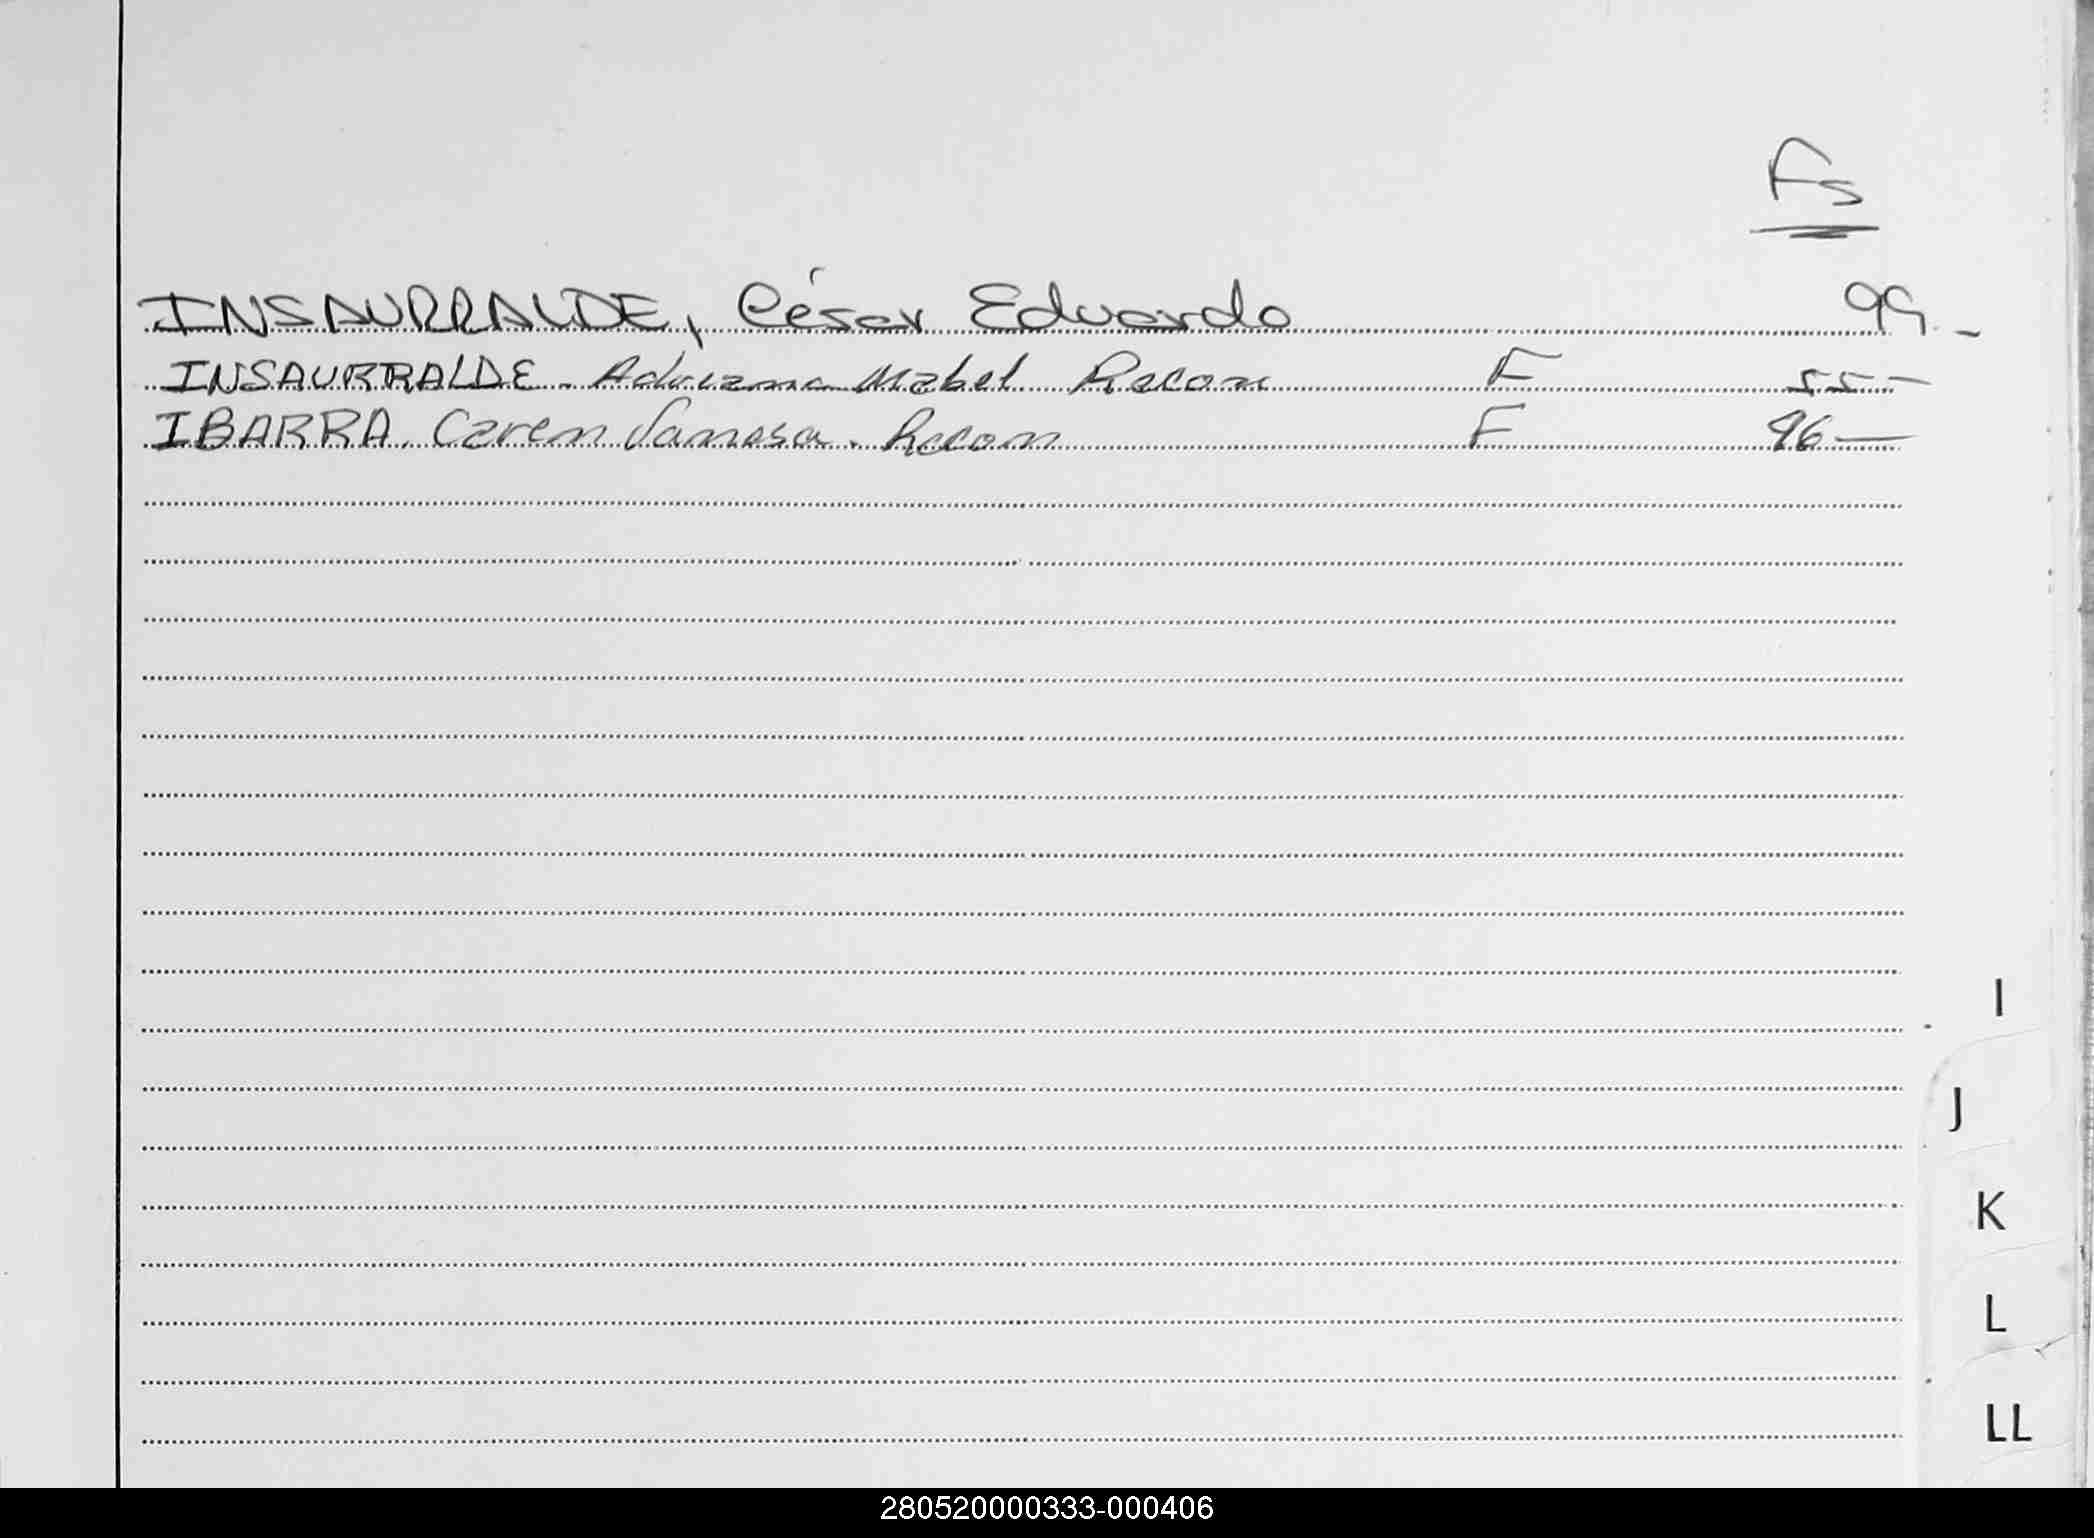 Fs
INSAURRALDE, César Eduardo 99.-
INSAURRALDE. Adriana Mabel Recon F 55-
IBARRA. Caren Vanesa. Recon F 96-
I
J
K
L
LL
280520000333-000406